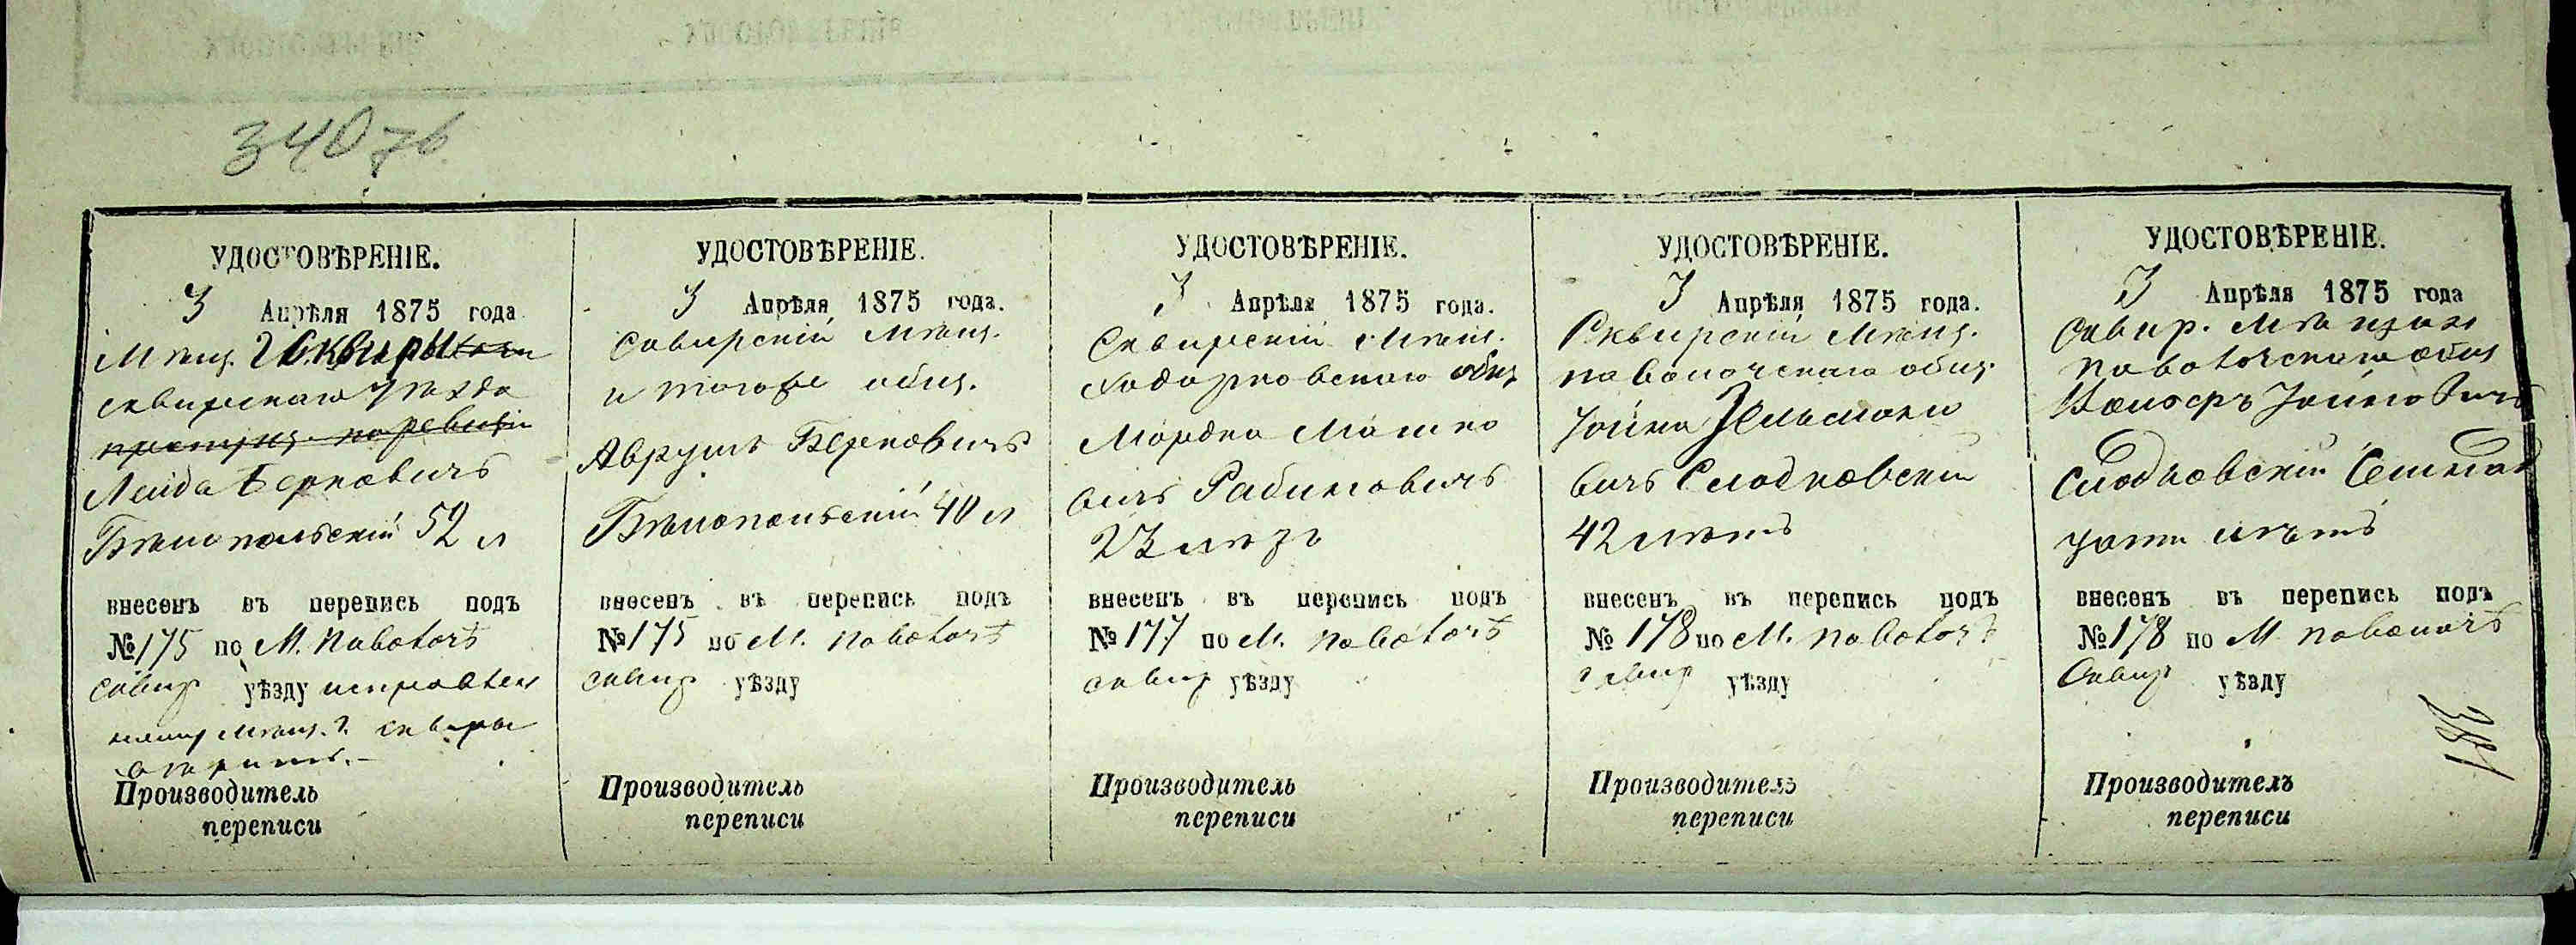 340 76
УДОСТОВѢРЕНІЕ.
3 Апрѣля 1875 года
Мѣщ. г. Сквиры
сквирскаго уѣзда
Лейда Берковичъ
Бѣлопольскій 52 л
внесенъ въ перепись подъ
№ 175 по М. Паволочѣ
сквир уѣзду
мѣщ. г. сквиры
Производитель
переписи
УДОСТОВѢРЕНІЕ.
3 Апрѣля 1875 года.
Сквирскій Мѣщ.
и тогоже общ.
Аврумъ Берковичъ
Бѣлопольскій 40 л
внесенъ въ перепись подъ
№ 175 по М. Паволочѣ
сквир уѣзду
Производитель
переписи
УДОСТОВѢРЕНІЕ.
3 Апрѣля 1875 года.
Сквирскій Мѣщ.
Ходорковскаго общ
Мордко Мошко
вичъ Рабиновичъ
23
внесенъ въ перепись подъ
№ 177 по М. Паволочѣ
сквир уѣзду
Производитель
переписи
УДОСТОВѢРЕНІЕ.
3 Апрѣля 1875 года.
Сквирскій Мѣщ.
паволочскаго общ.
Іойна Зельмано
вичъ Слодковскій
42 лѣтъ
внесенъ въ перепись подъ
№ 178 по М. Паволочѣ
сквир уѣзду
Производитель
переписи
УДОСТОВѢРЕНІЕ.
3 Апрѣля 1875 года
Сквир. Мѣщан
паволочскаго общ
Іойновичъ
Слодковскій Семнад
цати лѣтъ
внесенъ въ перепись подъ
№ 178 по М. паволочѣ
Сквир уѣзду
381
Производитель
переписи